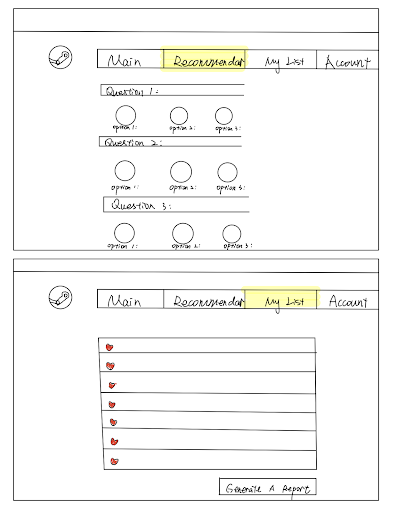 Main Recommendat My List Account
Question 1:
option 1: option 2: option 3:
Question 2:
option 1: option 2: option 3:
Question 3:
option 1: option 2: option 3:
Main Recommendat My List Account
Generate A Report